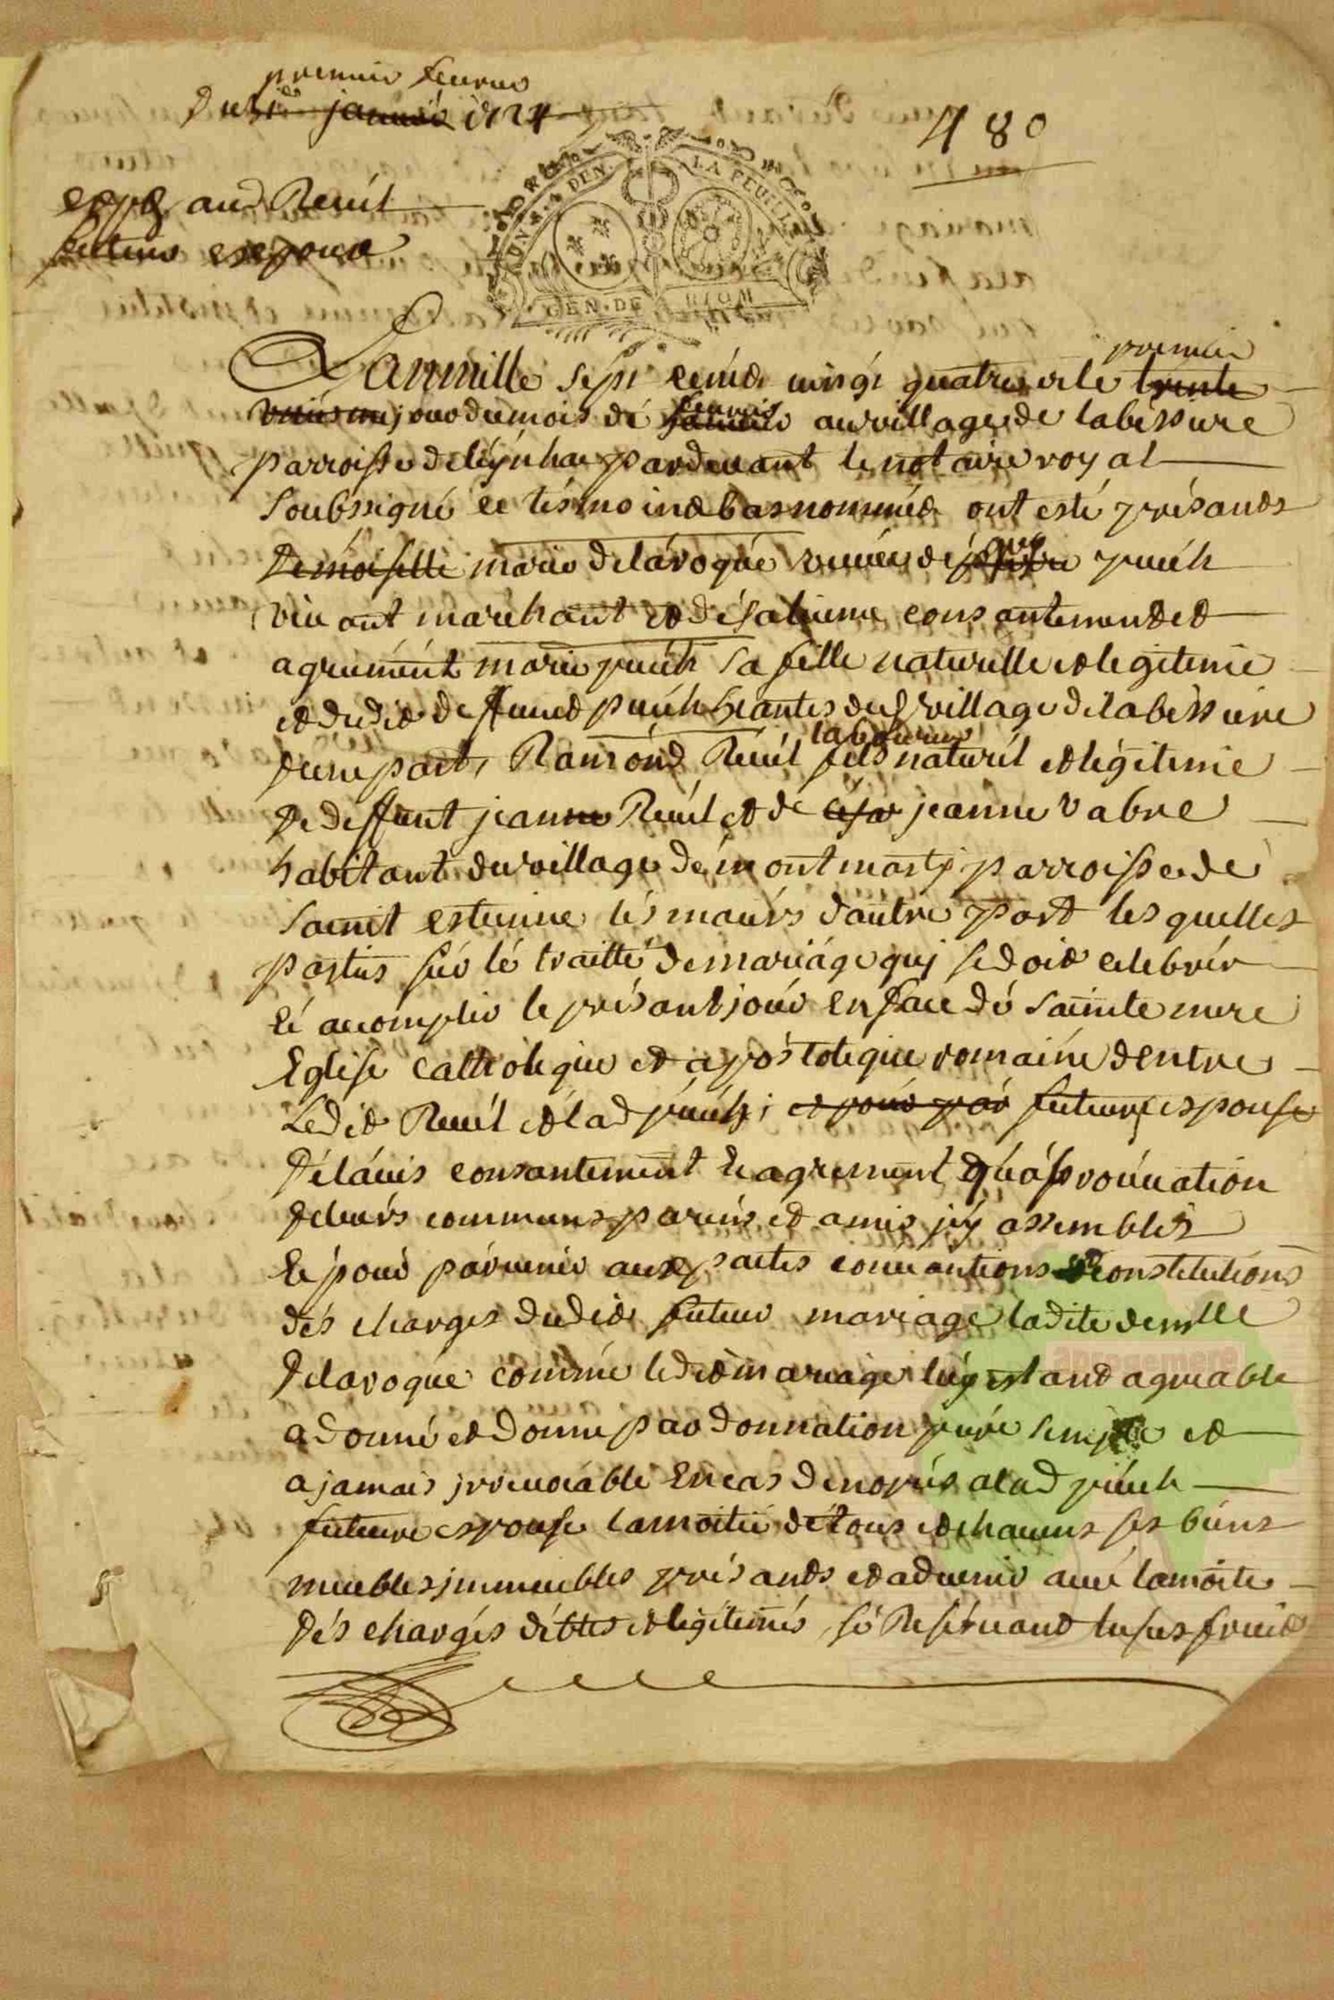 premier feurier
Du janvié 1724
480
expe aud Reuil
futurs expoux
UN S. 4 DEN. LA FEUILLE
GEN. DE RIOM
Lan mille sept cents vingt quatre et le trente premier
jour du mois de janvié feurier au village de labessure
parroisse de leynhac pardeuant le notaire royal
soubssigné et tesmoins bas nommés ont esté présants
Demoiselle marie delaroque veuve de puéh
viuant marchant et de sa bienne consantement et
agrumént marie puéh sa fille naturelle et legitime
et dudit deffunct puéh htantes dud village de labessure
dune part, Ramond Reuil laboureur fils naturél et légitime
de deffunt jeanne Reuil et de jeanne vabre
habitant du village de montmarty parroisse de
Saint estienne lés maurs dautre part lesquelles
partius sur lé traitté de mariage quy se doit celebrér
et accomplir le présant jour en face dé sainte mere
Eglise catholique et apostolique romaine dentre
Ledit Reuil et lad puéh; et pour par future espouse
Délauis consantement et agrement
deleurs communs paréns et amis jcy assemblés
Et pour paruenir aux pactes conuantions constitutions
dés charges dudit futeur mariage ladite demlle
Delaroque comme ledit mariage luy estant agreable
a donné et donne par donnation puré simple et
a jamais jrreuocable a lad puéh
future espouse la moitié de tous et chacuns ses biens
meubles jmmeubles présants et aduenir aué la moitié
Dés chargés débtes et légitimés, sé Resérvant